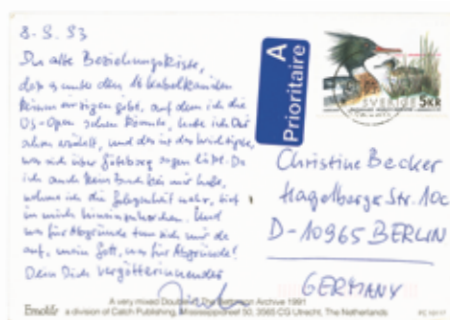 8-5.93
Du alte Beziehungskiste,
daß es unter den 16 Kabelkanälen
keinen einzigen gibt, auf dem ich die
US-Open sehen könnte, habe ich Dir
schon erzählt, und das ist das Wichtigste,
was sich über Göteborg sagen läßt. Da
ich auch kein Buch bei mir habe,
nehme ich die Gelegenheit wahr, tief
in mich hineinzuhorchen. Und
was für Abgründe tun sich mir da
auf, mein Gott, was für Abgründe!
Dein Dich vergötternder
A
Prioritaire
SVERIGE 5KR
Christine Becker
Hagelberger Str. 10c
D-10965 BERLIN
GERMANY
A very mixed Doubles, The Bettmann Archive 1991
a division of Catch Publishing, Mississippidreef 50, 3565 CG Utrecht, The Netherlands